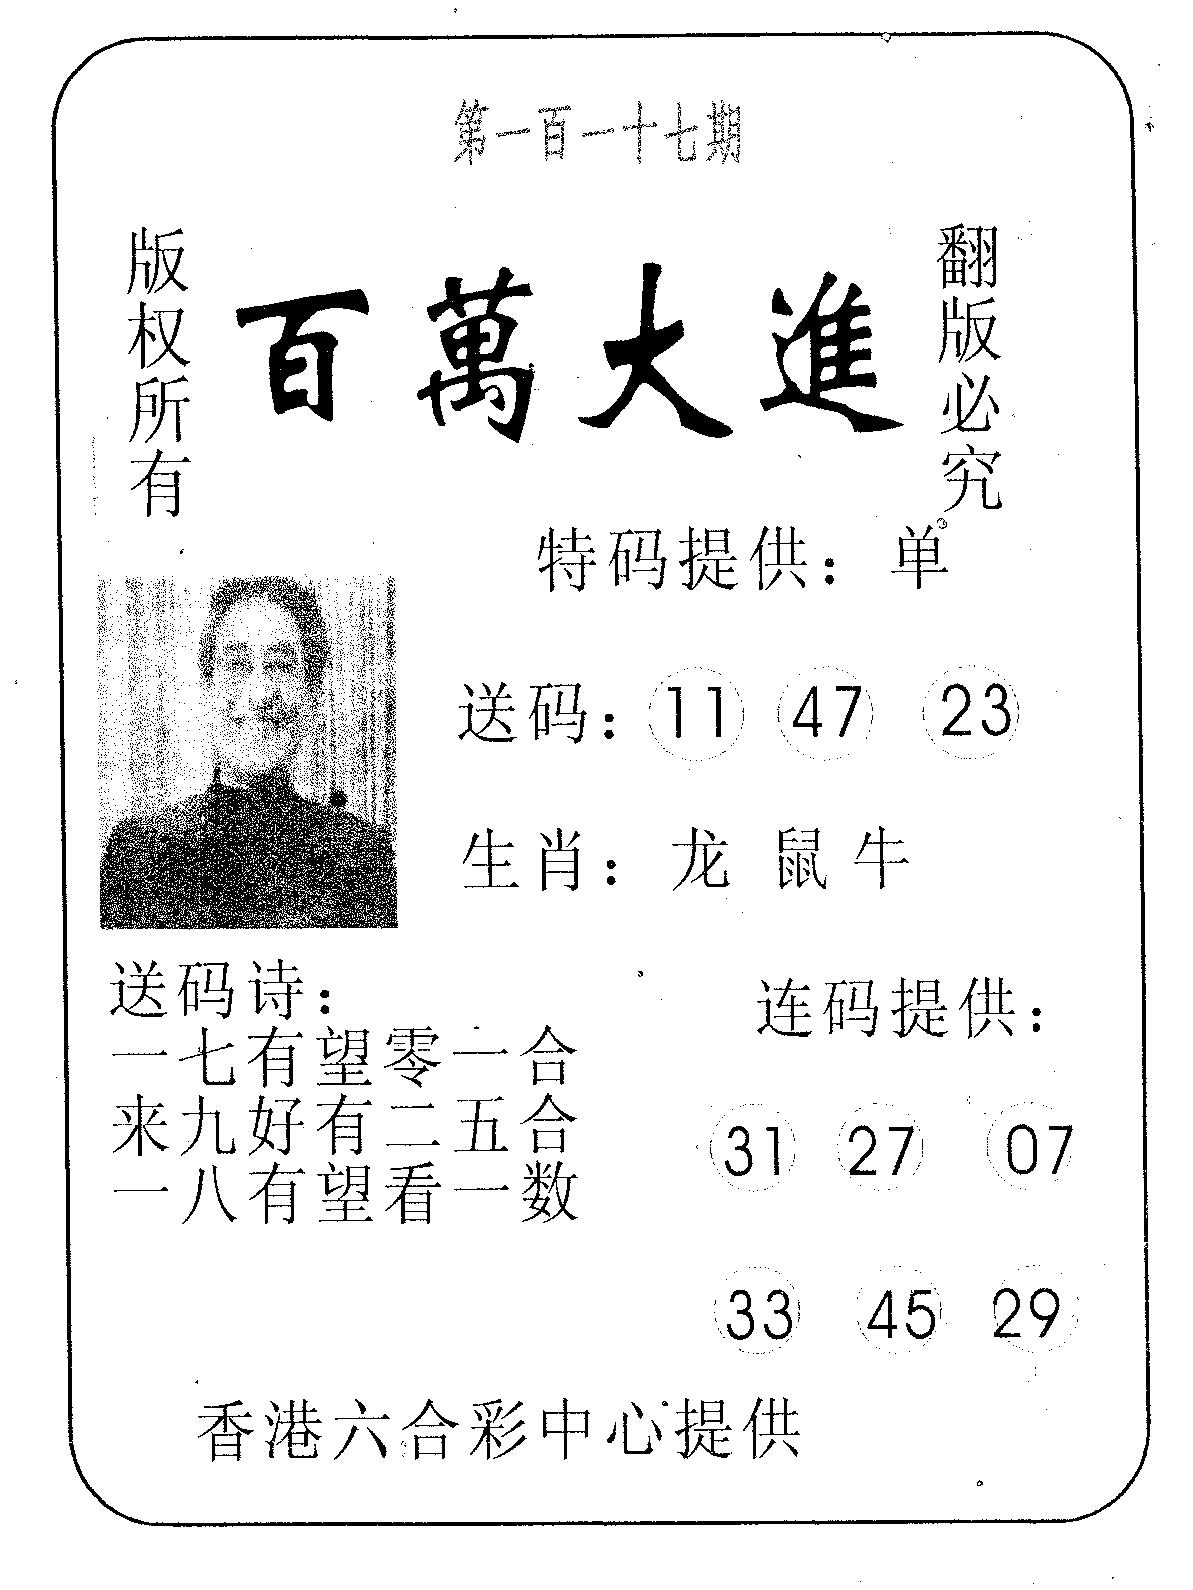 第一百一十七期
版权所有
百萬大進
翻版必究
特码提供：单
送码：11 47 23
生肖：龙 鼠 牛
送码诗：
一七有望零一合
来九好有二五合
一八有望看一数
连码提供：
31 27 07
33 45 29
香港六合彩中心提供